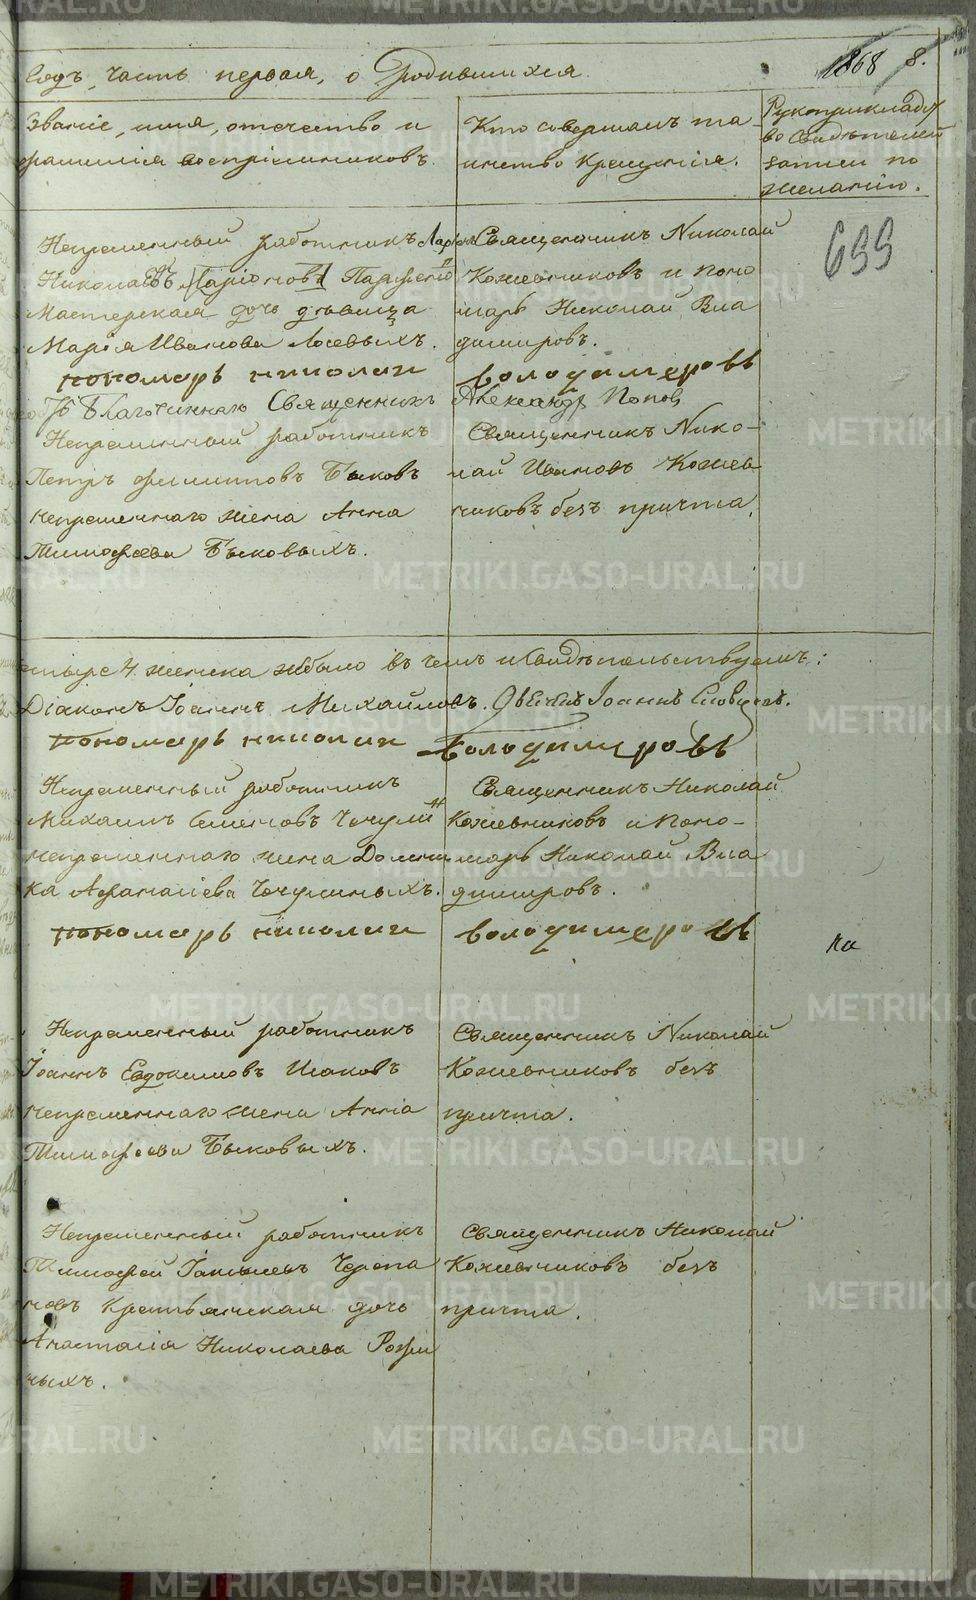 METRIKI.GASO-URAL.RU
Годъ, часть первая, о родившихся
8.
Званіе, имя, отечество и
фамилія воспріемниковъ.
Кто совершалъ та
инство крещенія.
Рукоприкладст
во свидѣтелей
записи по
желанію.
699
Непременный работникъ
Мастерская дочь дѣвица
Марія Иванова Лосевыхъ.
Священникъ Николай
Кожевниковъ и поно
марь Николай Вла
димировъ.
пономарь николаи володимеровъ
Благочиннаго Священникъ Александръ Поповъ
Непременный работникъ
Петръ Филиповъ Быковъ
непременнаго жена Анна
Тимофеева Быковыхъ.
Священникъ Нико-
лай Ивановъ Кожев
никовъ безъ причта.
4 женска небыло въ чемъ и свидѣтельствуемъ:
Діаконъ Іоаннъ Михайловъ. Іоаннъ Словцовъ.
пономарь николаи володимеровъ
Непременный работникъ
Михаилъ Семеновъ Чечулин
непременнаго жена Домни
ка Афанасіева Чечулиныхъ.
Священникъ Николай
Кожевниковъ и поно-
марь Николай Вла
димировъ.
пономарь николаи володимеровъ
на
Непременный работникъ
Іоаннъ Евдокимовъ Исаковъ
непременнаго жена Анна
Тимофеева Быковыхъ.
Священникъ Николай
Кожевниковъ безъ
причта.
Непременный работникъ
Тимофей Черепа
новъ крестьянская дочь
Анастасія Николаева
ныхъ.
Священникъ Николай
Кожевниковъ безъ
причта.